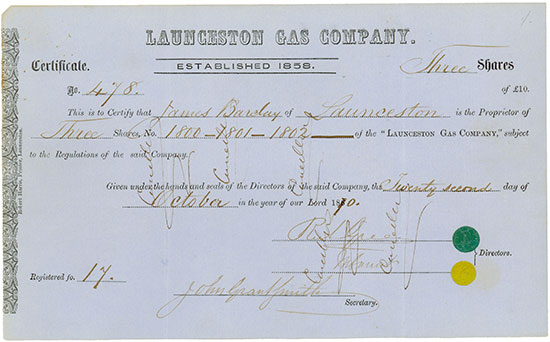 LAUNCESTON GAS COMPANY.
ESTABLISHED 1858.
Certificate. Three Shares
No. 478. of £10.
This is to Certify that James Barclay of Launceston is the Proprietor of
Three Shares, No. 1800-1801-1802 of the "LAUNCESTON GAS COMPANY," subject
to the Regulations of the said Company.
Given under the hands and seals of the Directors of the said Company, the Twenty second day of
October in the year of our Lord 1870.
Directors.
Registered fo. 17.
John Grant Smith
Secretary.
Cancelled
Cancelled
Cancelled
Cancelled
Cancelled